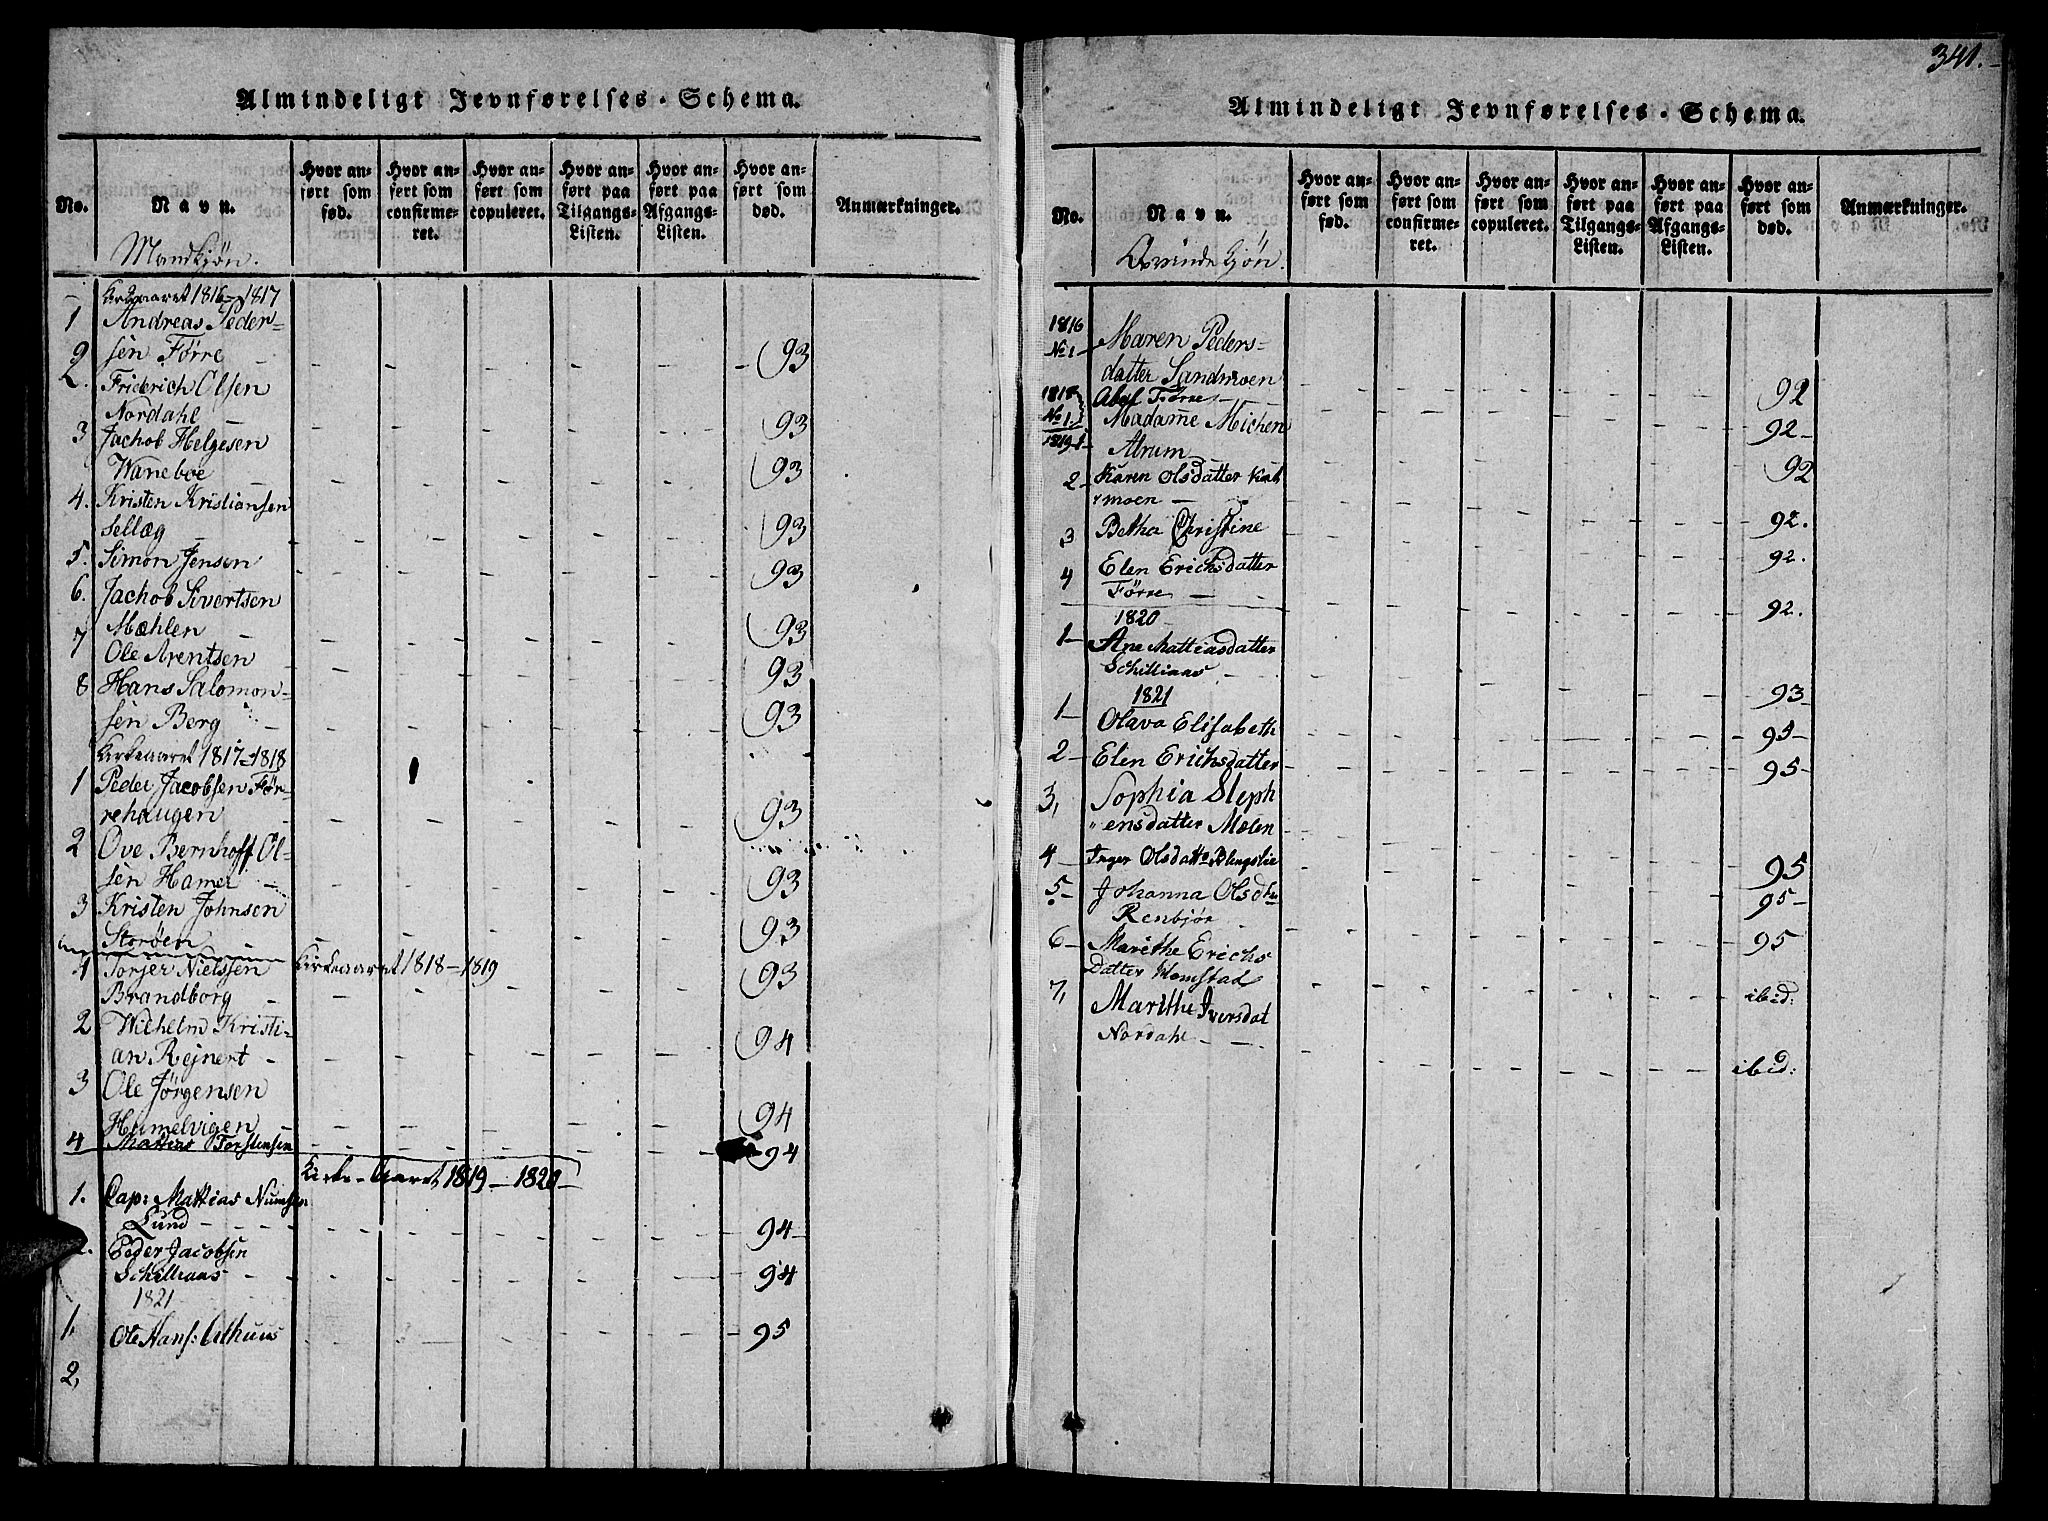 Almindeligt Jevnførelses-Schema.
No.
Navn.
Hvor anført som fød.
Hvor anført som confirmeret.
Hvor anført som copuleret.
Hvor anført paa Tilgangs-Listen.
Hvor anført paa Afgangs-Listen.
Hvor anført som død.
Anmærkninger.
Mandkjøn.
Kirkeaaret 1816-1817
1 Andreas Peder-
sen Førre - - - - - - 93
2. Friderich Olsen
Nordahl - - - - - - 93
3 Jachob Helgesen
Waneboe - - - - - - 93
4. Kristen Kristiansen
Sellæg - - - - - - 93
5. Simon Jensen - - - - - 93
6. Jachob Sivertsen
Mæhlen - - - - - - 93
7 Ole Arentsen - - - - - 93
8 Hans Salomon-
sen Berg - - - - - - 93
Kirkeaaret 1817-1818
1 Peder Jacobsen Før-
rehaugen - - - - - - 93
2 Ove Bernhoff Ol-
sen Hamer - - - - - - 93
3 Kristen Johnsen
Storøen - - - - - - 93
Kirkeaaret 1818-1819
1 Torjer Nielssen
Brandborg - - - - - - 93
2 Wilhelm Kristi-
an Rejnert - - - - - - 94
3 Ole Jørgensen
Humelvigen - - - - - - 94
4 Mattias Torstensen - - - - - 94
Kirke-Aaret 1819-1820-
1. Cap: Mattias Numsen
Lund - - - - - - 94-
2. Peder Jacobsen
Schillraas - - - - - - 94
1821
1. Ole Hans: - - - - - - 95
2,
341.-
Almindeligt Jevnførelses-Schema.
No.
Navn.
Hvor anført som fød.
Hvor anført som confirmeret.
Hvor anført som copuleret.
Hvor anført paa Tilgangs-Listen.
Hvor anført paa Afgangs-Listen.
Hvor anført som død.
Anmærkninger.
Qvindekjøn.
1816
No 1 Maren Peders-
datter Sandmoen - - - - - 92
1818 Abel Førre - - - - - - 92-
No 1.
1819-1 Madame Michen
Alrum - - - - - - 92
2- Karen Olsdatter
moen - - - - - - 92.
3 Betha Christine - - - - - 92.
4 Elen Erichsdatter
Førre - - - - - - 92.
1820
1- Ane Mattiasdatter
Schillraas - - - - - - 93
1821
1- Olava Elisabeth - - - - - 95-
2- Elen Erichsdatter - - - - - 95-
3, Sophia Steph
"ensdatter Mælen - - - - - 95
4- Inger Olsdattr - - - - - 95-
5- Johanna Olsdtr
Renbjør - - - - - - 95
6- Marithe Erichs
Datter Homstad - - - - - ibid:
7, Marithe Iversdat
Nordahl - - - - - - ibid: